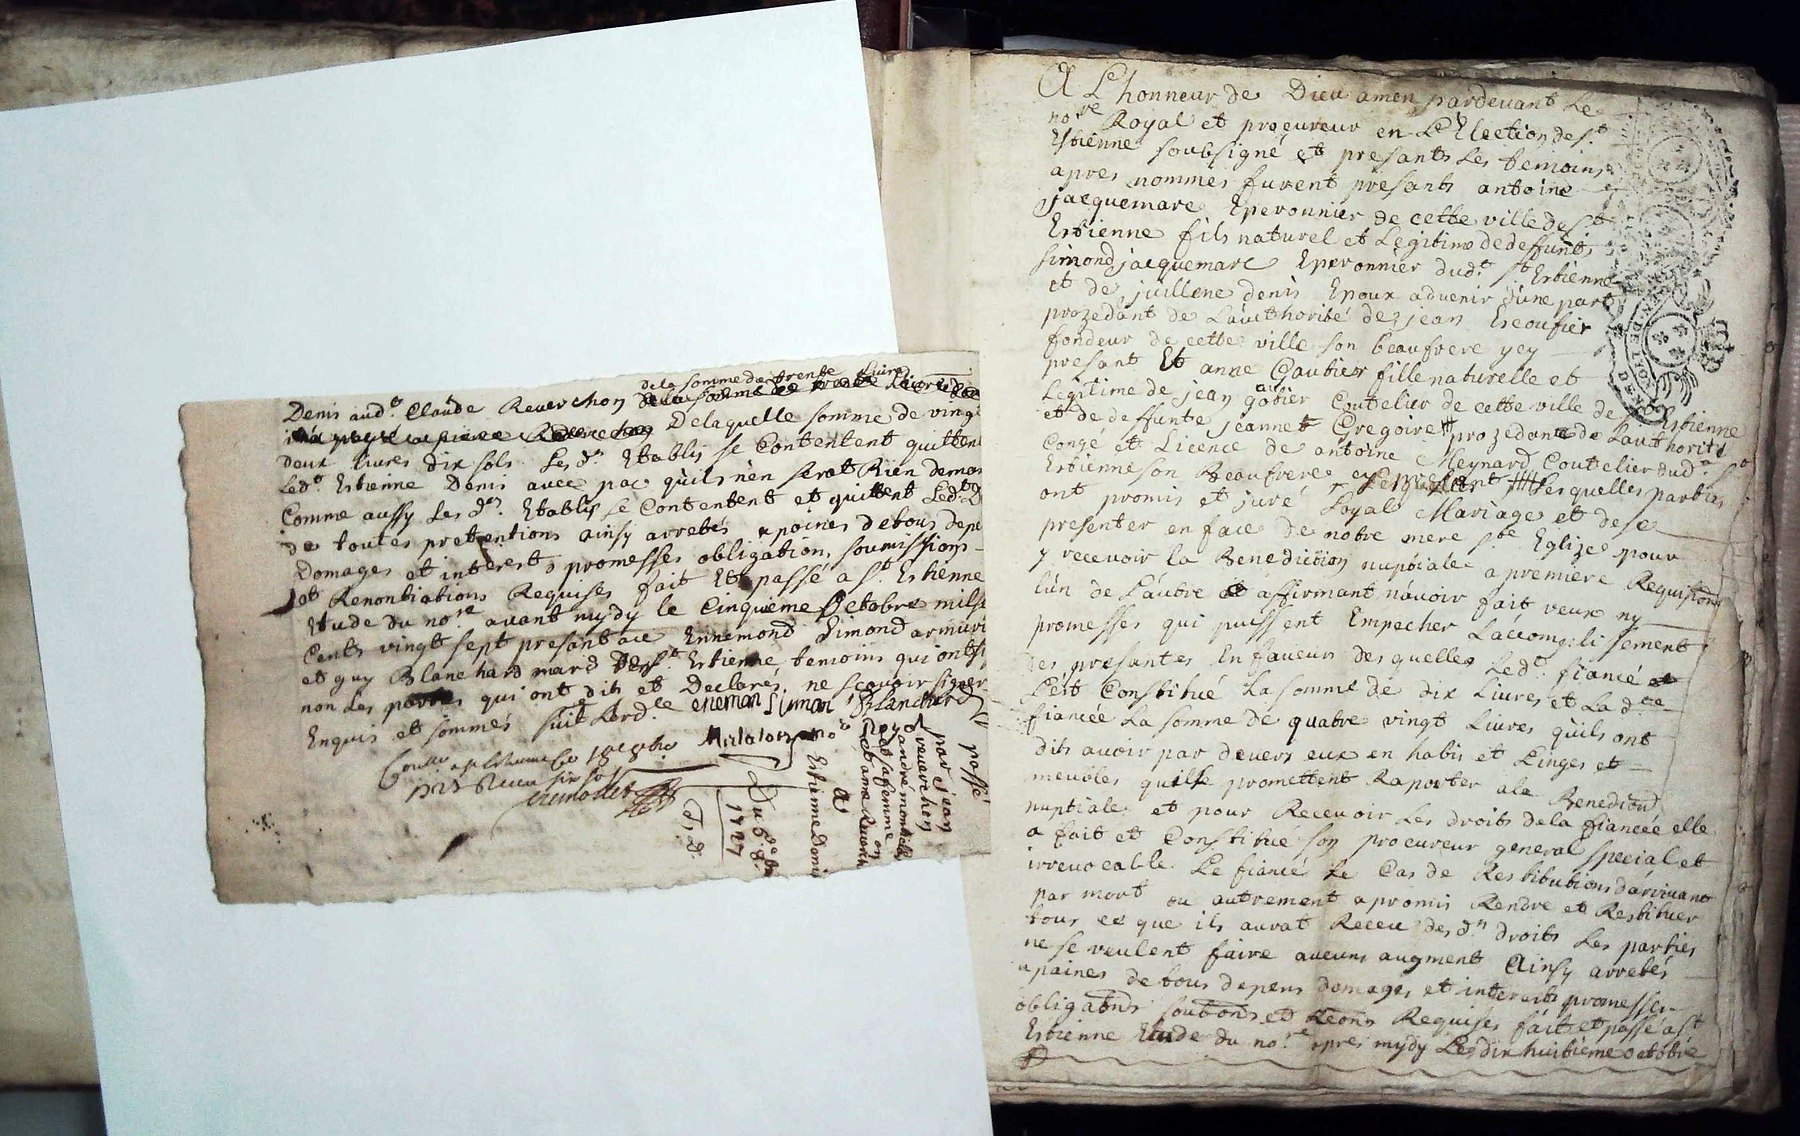 de la somme de trente Livres
Denis aud.t Claude Reverchon
Delaquelle somme de vingt
deux livres dix sols Les d.ts Establis se Contentent quittent
Led.t Estienne Denis avec pac qu'ils n'en serat Rien deman
Comme aussy Les d.ts Establis se Contentent et quittent Led.t D
de toutes pretentions ainsy arretés a poines de tous depe
Domages et interests promesses obligation, soumissions
et Renontiations Requises fait Et passé a S.t Estienne
Etude du no.re avant mydy le Cinquieme Octobre milse
Cents vingt sept presant ace Ennemond Simond armuri
et guy Blanchard mard de S.t Estienne, temoins qui ont s
non Les parties qui ont dits et Declarés ne scavoir signer
Enquis et sommés suit Lord.ce eneman simon Blanchard
no.re
passé
par jean
reverchon
andré
et sa femme
et anne Reverch
on
A
Estienne Denis
Du 5.e 8.bre
1727
A L'honneur de Dieu amen pardevant Le
no.re Royal et procureur en L'Election de S.t
Estienne soubsigné et presants Les temoins
apres nommés furent presants antoine
jacquemare Eperonnier de cette ville de S.t
Estienne fils naturel et Legitime de deffunts
simond jacquemare Eperonnier dud.t S.t Estienne
et de juillene denis Epoux advenir d'une part
prozedant de L'aucthorité de jean Escoufier
fondeur de cette ville son beaufrere yey
presant Et anne Gautier fille naturelle et
Legitime de jean gautier Coutelier de cette ville de S.t Estienne
et de deffunte jeannet Gregoire prozedante de L'authorité
Congé et Licence de antoine Meynard Coutelier dud.t S.t
Estienne son Beaufrere Lesquelles parties
ont promis et juré Loyal Mariage et de se
presenter en face de notre mere S.te Eglize pour
y recevoir la Benediction nuptiale a premiere Requisition
L'un de L'autre et affirmant n'avoir fait veux ny
promesses qui puissent Empecher L'accomplissement
des presantes En faveur des quelles Led.t fiancé
s'est Constitué La somme de dix Livres et La d.te
fiancée La somme de quatre vingt Livres qu'ils ont
dits avoir par devers eux en habis et Linges et
meubles qu'ils promettent Raporter a la Benediond
nuptiale et pour Recevoir Les droits de la fiancée elle
a fait et Constitué son procureur general special et
irrevocable Le fiancé Le Cas de Restitutions d'arrivant
par mort ou autrement a promis Rendre et Restituer
tous ce que ils aurat Receu des d.ts droits Les parties
ne se veulent faire aucuns augment Ainsy arretés
a paines de tous depens domages et interests promesses
obligations soub.ons et Re.ons Requises fait et passé a S.t
Estienne Etude du no.re apres mydy Le dix huitieme octobre